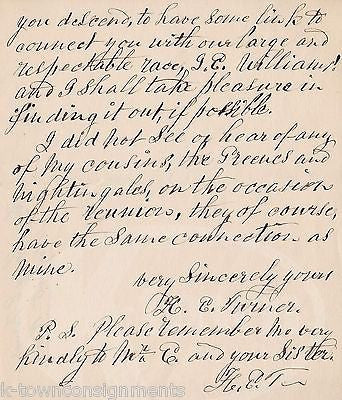 you descend, to have some link to
connect you with our large and
respectable race, I.E. Williams!
and I shall take pleasure in
finding it out, if possible.
I did not see or hear of any
of my cousins, the Greenes and
nightingales, on the occasion
of the reunion, they of course,
have the same connection as
mine.
very sincerely yours
H. E. Turner.
P. S. Please remember me very
kindly to Mrs C. and your Sister.
H. E. T
k-townconsignments